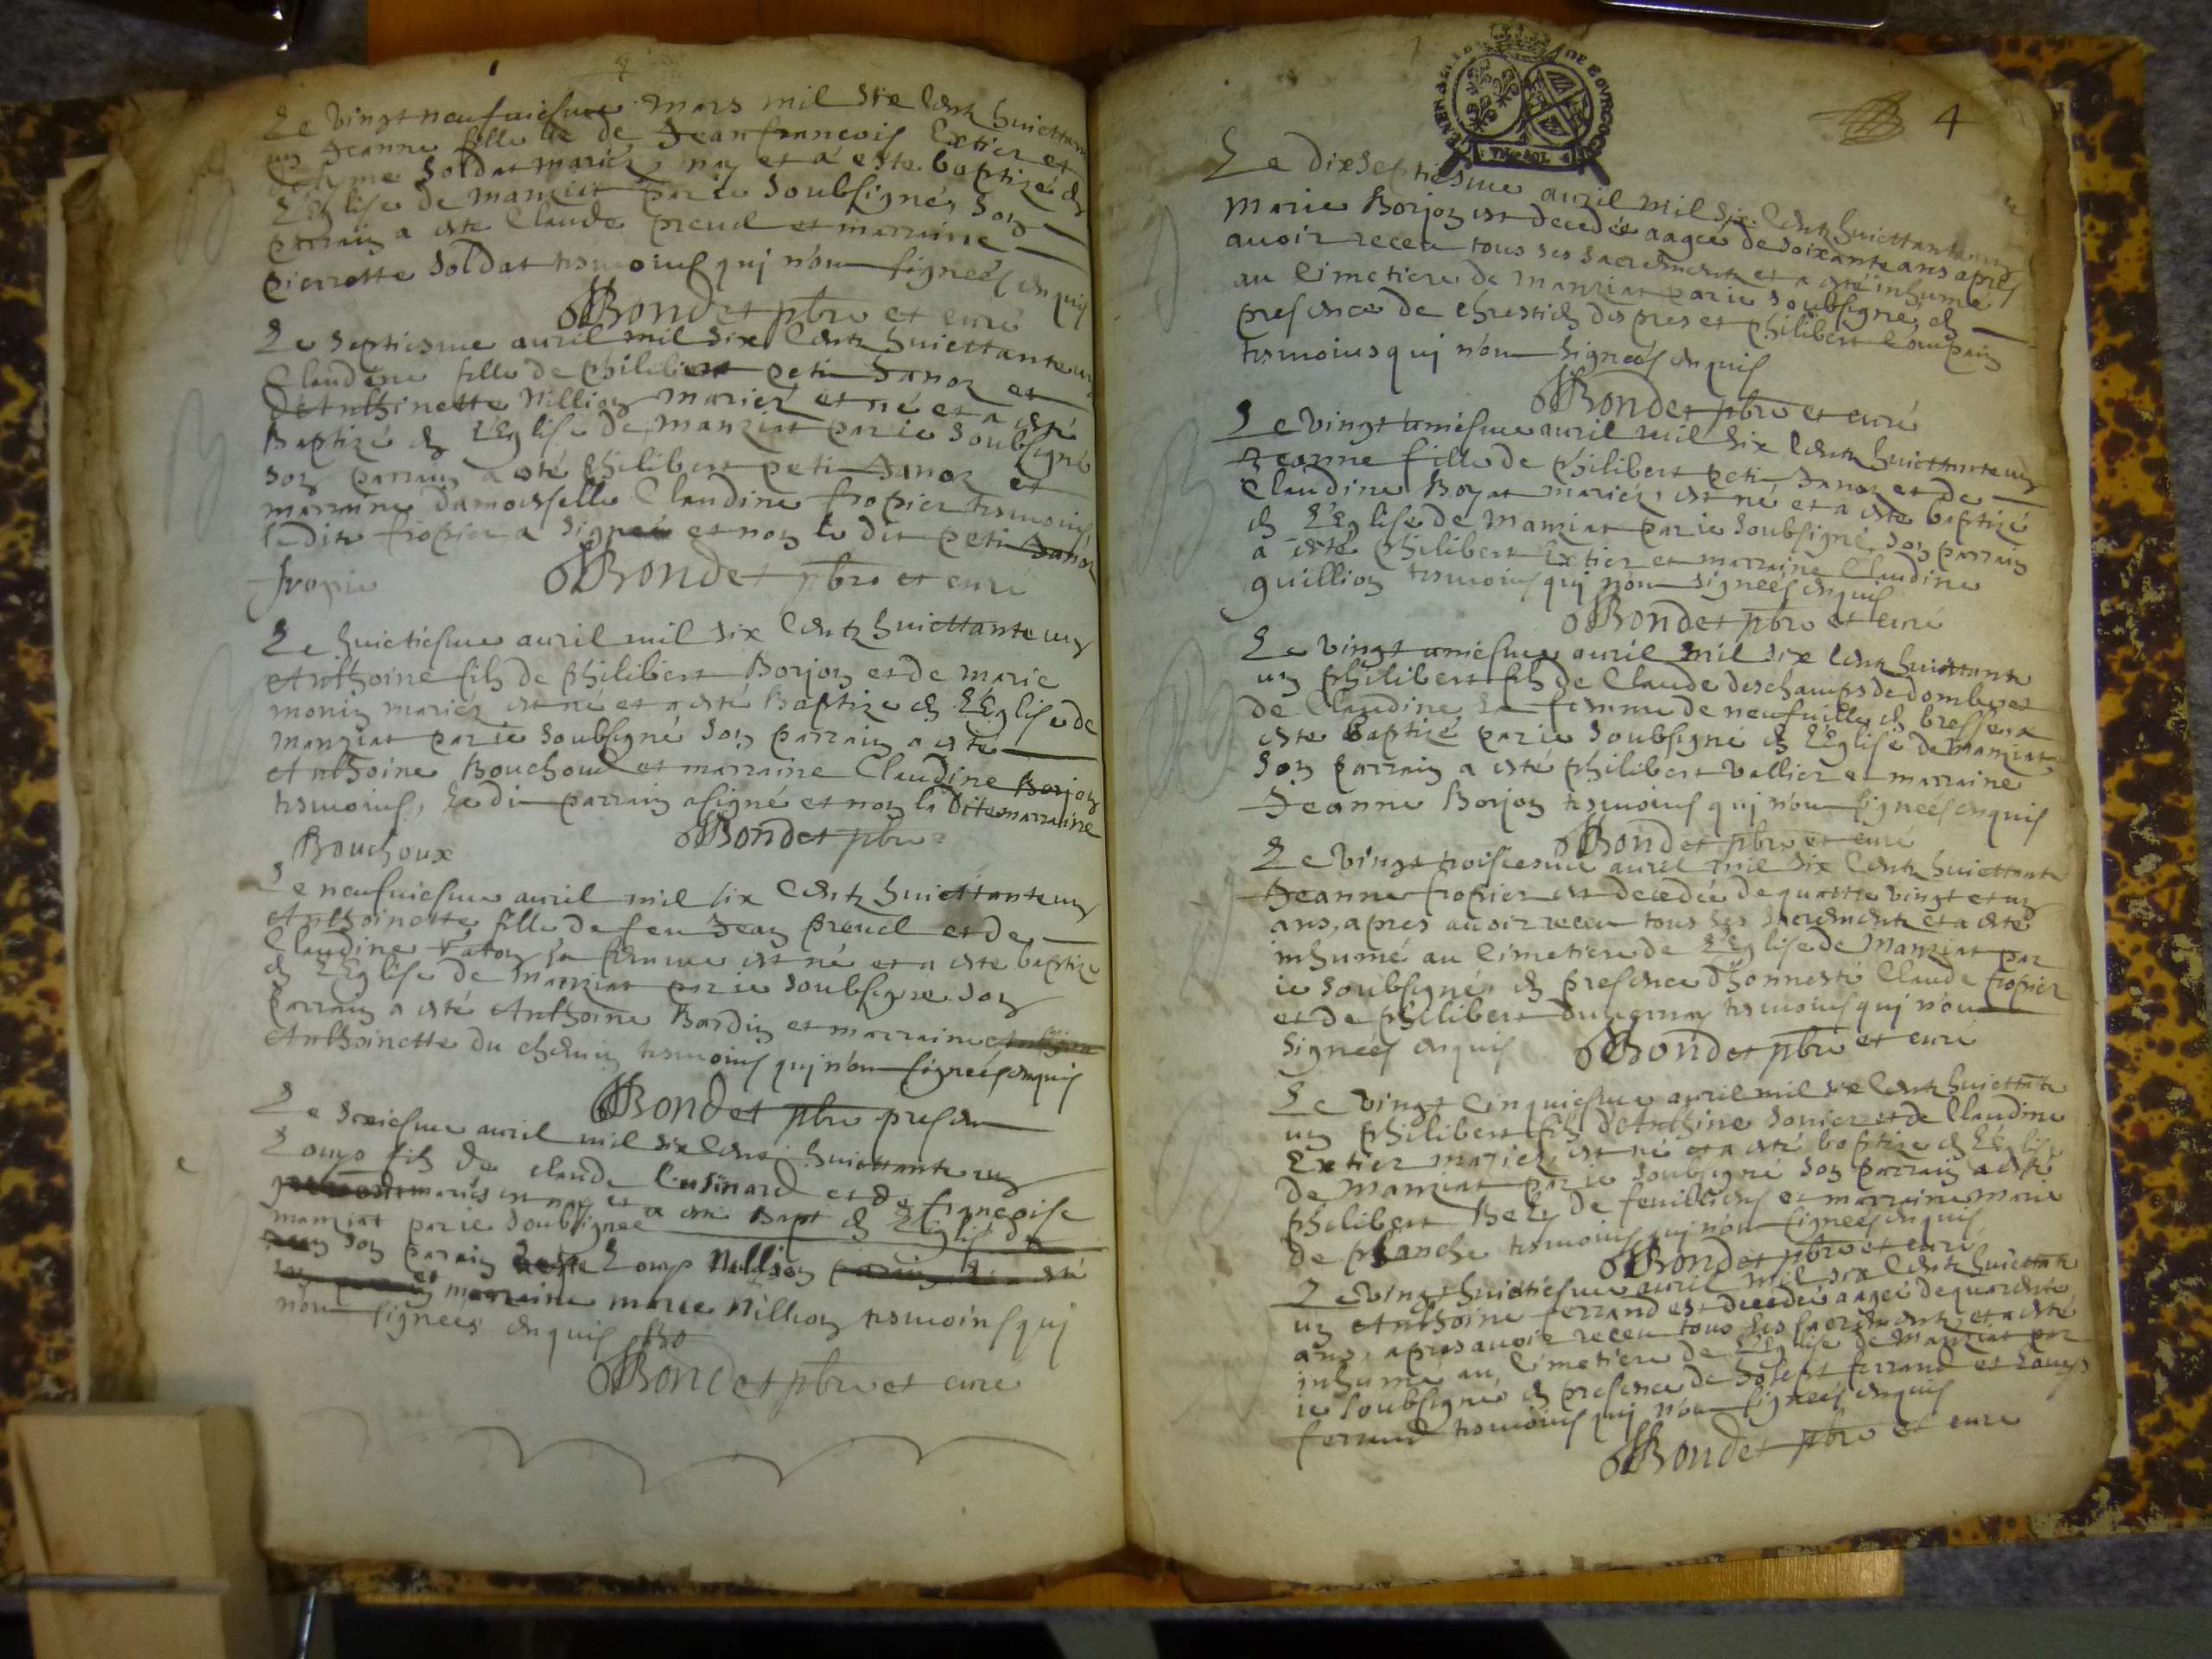 Le vingt neufuiesme mars mil six Centz huicttante
un Jeanne fille de Jean francois Extier et
soldat mariez nay et a este baptizé en
L'Eglise de manziat par ie soubsigné, son
parrain a este Claude preud et marraine
pierrotte soldat tesmoins qui n'ont signeés enquis
Bondet pbre et curé
Le septiesme auril mil six Centz huicttante un
Claudine fille de philibert petit Janon et
de Anthoinette Nillion mariez est né et a esté
Baptizé en L'Eglise de manziat par ie soubsigné
son parrain a esté philibert petit Janon et
marraine damoiselle Claudine fropier tesmoins
ladite fropier a signeé et non le dit petit Janon
fropie
Bondet pbre et curé
Le huictiesme auril mil six Centz huicttante un
Anthoine filz de philibert Borjon et de marie
monin mariez est né et a esté Baptize en L'Eglise de
manziat par ie soubsigné son parrain a esté
Anthoine Bouchoux et marraine Claudine Borjon
tesmoins, le dit parrain a signé et non la dite marraine
Bondet pbre
Bouchoux
Le neufuiesme auril mil six Centz huicttante un
Anthoinette fille de feu Jean preud et de
Claudine Vaton sa femme est né et a este baptize
en L'Eglise de manziat par ie soubsigne son
parrain a esté Anthoine Bardin et marraine
Anthoinette du chemin tesmoins qui n'ont signeés enquis
Bondet pbre present
Le auril mil six Cent huicttante un
Louys filz de claude Cusinard et de francoise
mariés est nay et a esté Bapt en L'Eglise de
manziat par ie soubsignee
son parain Louys Nillion esté
et marraine marie Nillion tesmoins qui
n'ont signeés enquis Bo
Bondet pbre et curé
4
Le dixseptiesme auril mil six Centz huicttante un
marie Borjon est decedeé aagee de soixante ans apres
auoir receu tous ses sacrements et a esté inhumé
au Cimetiere de manziat par ie soubsigné, en
presence de chrestien des pres et philibert Compain
tesmoins qui n'ont signeés enquis
Bondet pbre et curé
Le vingt uniesme auril mil six Centz huicttante un
Jeanne fille de philibert petit Janon et de
Claudine Boyat mariez, est né et a este baptizé
en L'Eglise de manziat par ie soubsigné, son parrain
a esté philibert Extier et marraine Claudine
guillion tesmoins qui n'ont signeés enquis
Bondet pbre et curé
Le vingt uniesme auril mil six Centz huicttante
un philibert filz de Claude deschamps de dombes et
de Claudine sa femme de neufuille en bresse a
este baptizé par ie soubsigné en L'Eglise de manziat
son parrain a esté philibert vallier et marraine
Jeanne Borjon tesmoins qui n'ont signeés enquis
Bondet pbre et curé
Le vingt troisiesme auril mil six Centz huicttante
Jeanne fropier est decedée de quattre vingt et un
ans, apres auoir receu tous ses sacrements et a esté
inhumé au Cimetiere de L'Eglise de manziat par
ie soubsigné, en presence d'honneste Claude fropier
et de philibert tesmoins qui n'ont
signeés enquis Bondet pbre et curé
Le vingt Cinquiesme auril mil six Centz huicttante
un philibert filz d'Anthoine sonier et de Claudine
Extier mariez, est né et a esté baptize en L'Eglise
de manziat par ie soubsigné son parrain a esté
philibert Bely de feuilliens et marraine marie
de planche tesmoins qui n'ont signeés enquis
Bondet pbre et curé
Le vingt huictiesme auril mil six Centz huicttante
un Anthoine ferrand est decedé aagee de quarente
ans, apres auoir receu tous ses sacrements et a esté
inhumé au Cimetiere de L'Eglise de manziat par
ie soubsigné en presence de Joseph ferrand et Louys
ferrand tesmoins qui n'ont signeés enquis
Bondet pbre et curé